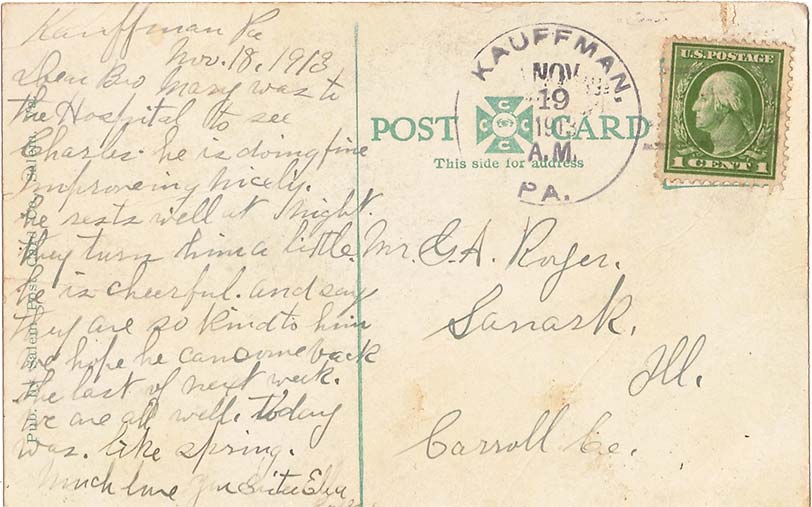 Kauffman Pa
Nov. 18, 1913
Dear Bro Mary was to
the Hospital to see
Charles. he is doing fine
Improveing nicely.
he rests well at night.
they turn him a little.
he is cheerful. and say
they are so kind to him
we hope he can come back
the last of next week.
we are all well. today
was. like spring.
Much love your Sister
Pub. by Salem Post Card Co., Salem
KAUFFMAN.
NOV
19
A.M.
PA.
POST CARD
C C C C
This side for address
U.S. POSTAGE
1 CENT 1
Mr. G. A. Royer.
Lanark.
Ill.
Carroll Co.